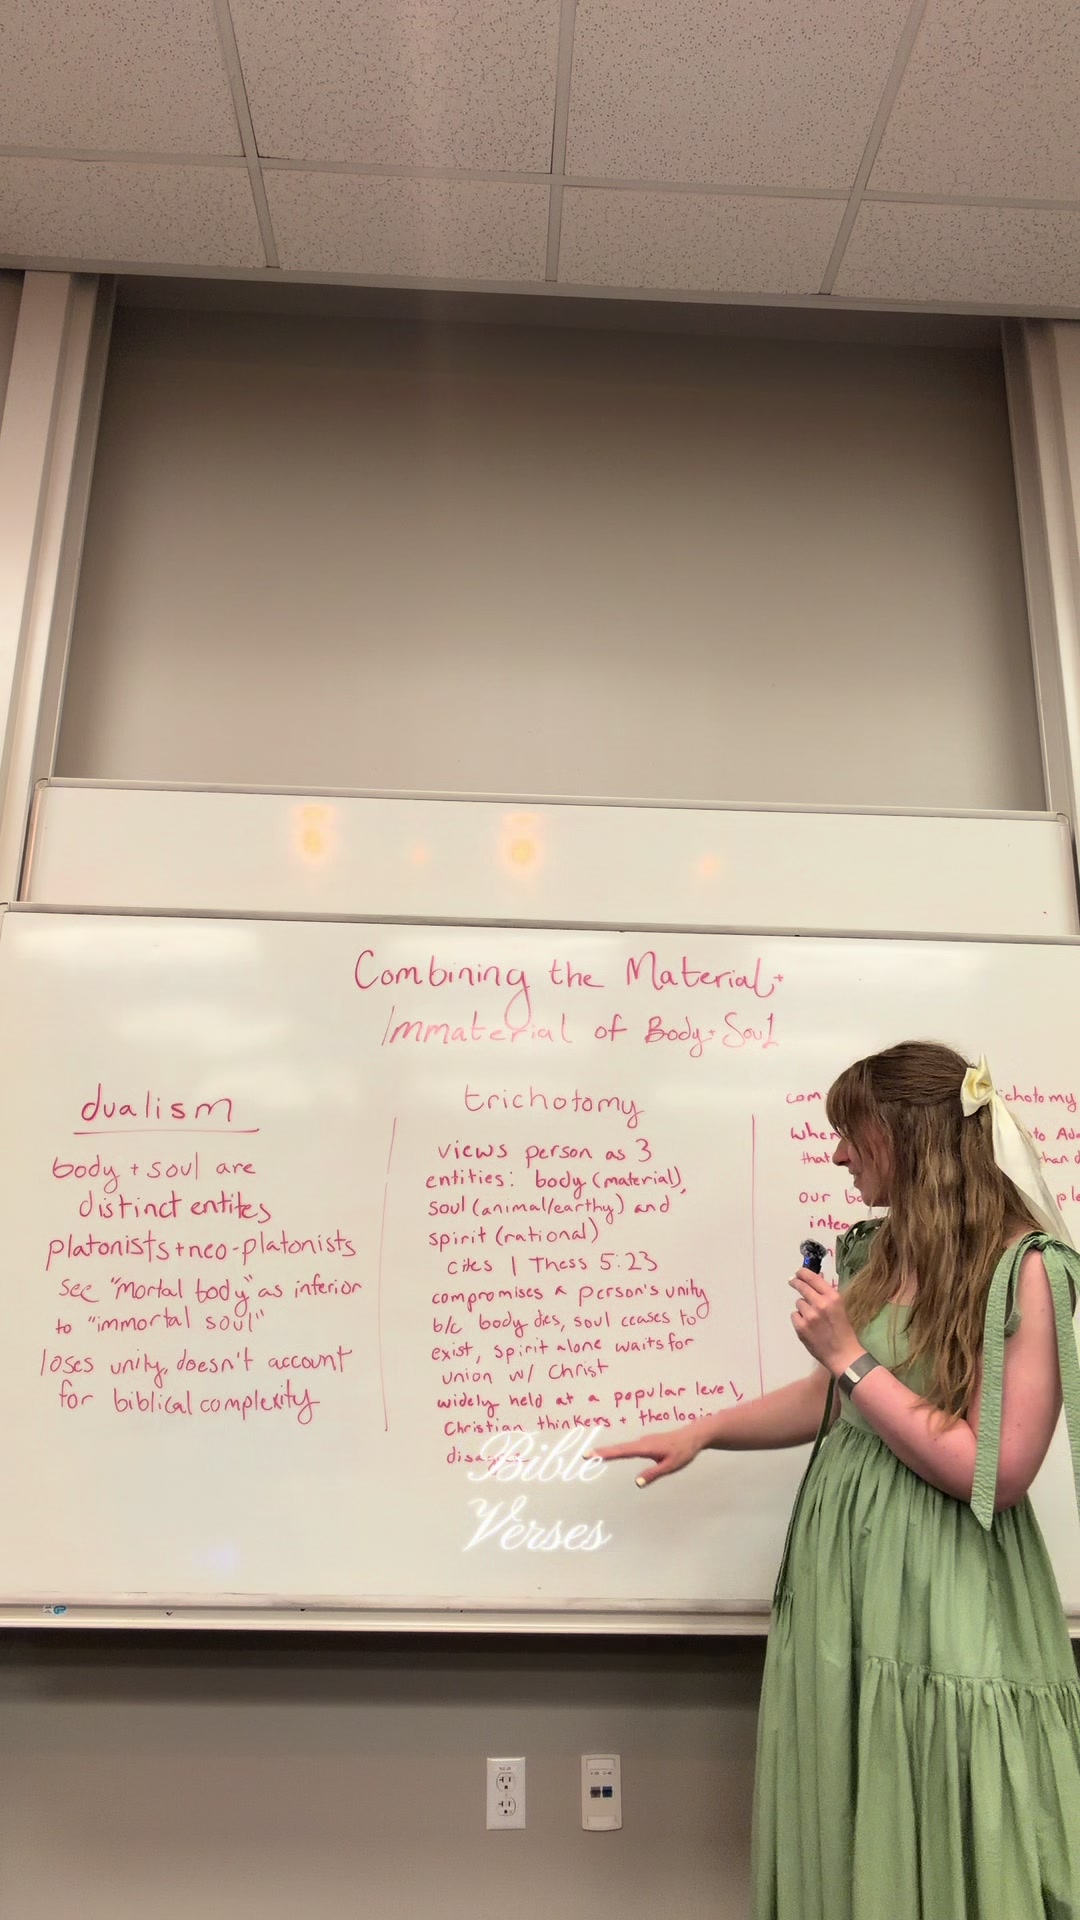 Combining the Material +
Immaterial of Body + Soul
dualism
body + soul are
distinct entites
platonists + neo-platonists
see "mortal body" as inferior
to "immortal soul"
loses unity, doesn't account
for biblical complexity
trichotomy
views person as 3
entities: body (material),
soul (animal/earthy) and
spirit (rational)
cites 1 Thess 5:23
compromises a person's unity
b/c body dies, soul ceases to
exist, spirit alone waits for
union w/ Christ
widely held at a popular level,
Christian thinkers +
Bible
Verses
our